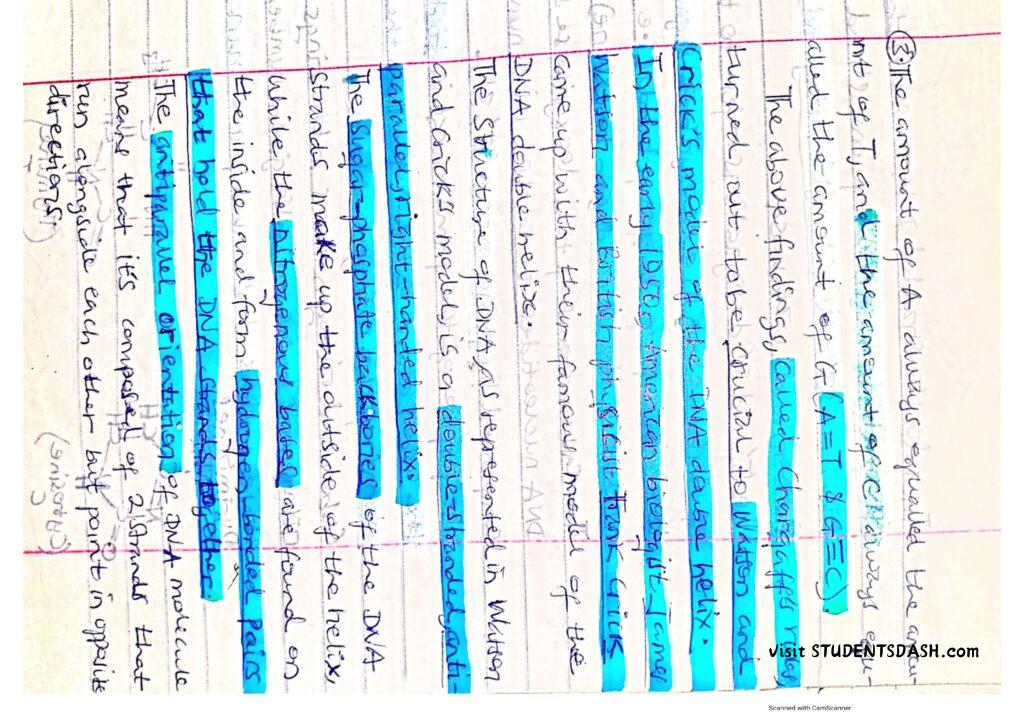 ③. The amount of A always equalled the amou-
nt of T, and the amount of C always equ-
alled the amount of G (A=T $ G=C)
The above finding, called Chargaff's rules,
turned out to be crucial to Watson and
Crick's model of the DNA double helix.
In the early 1950s, American biologist James
Watson and British physicist Frank Crick
came up with their famous model of the
DNA double helix.
The structure of DNA, as represented in Watson
and Crick's model, is a double-stranded, anti-
parallel, right-handed helix.
The sugar-phosphate backbones of the DNA
strands make up the outside of the helix,
while the nitrogenous bases are found on
the inside and form hydrogen-bonded pairs
that hold the DNA strands together
The antiparallel orientation of DNA molecule
means that it's composed of 2 strands that
run alongside each other but point in opposite
directions.
(Cytosine)
visit STUDENTSDASH.com
Scanned with CamScanner